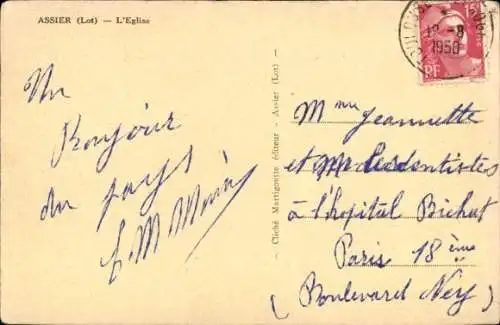 ASSIER (Lot) — L'Eglise
Un
Bonjour
du pays
Cliché Martigoutte éditeur - Assier (Lot)
18 -8
1950
RF
Mme Jeannette
et M les dentistes
à l'hopital Bichat
Paris 18ème
(Boulevard Ney)